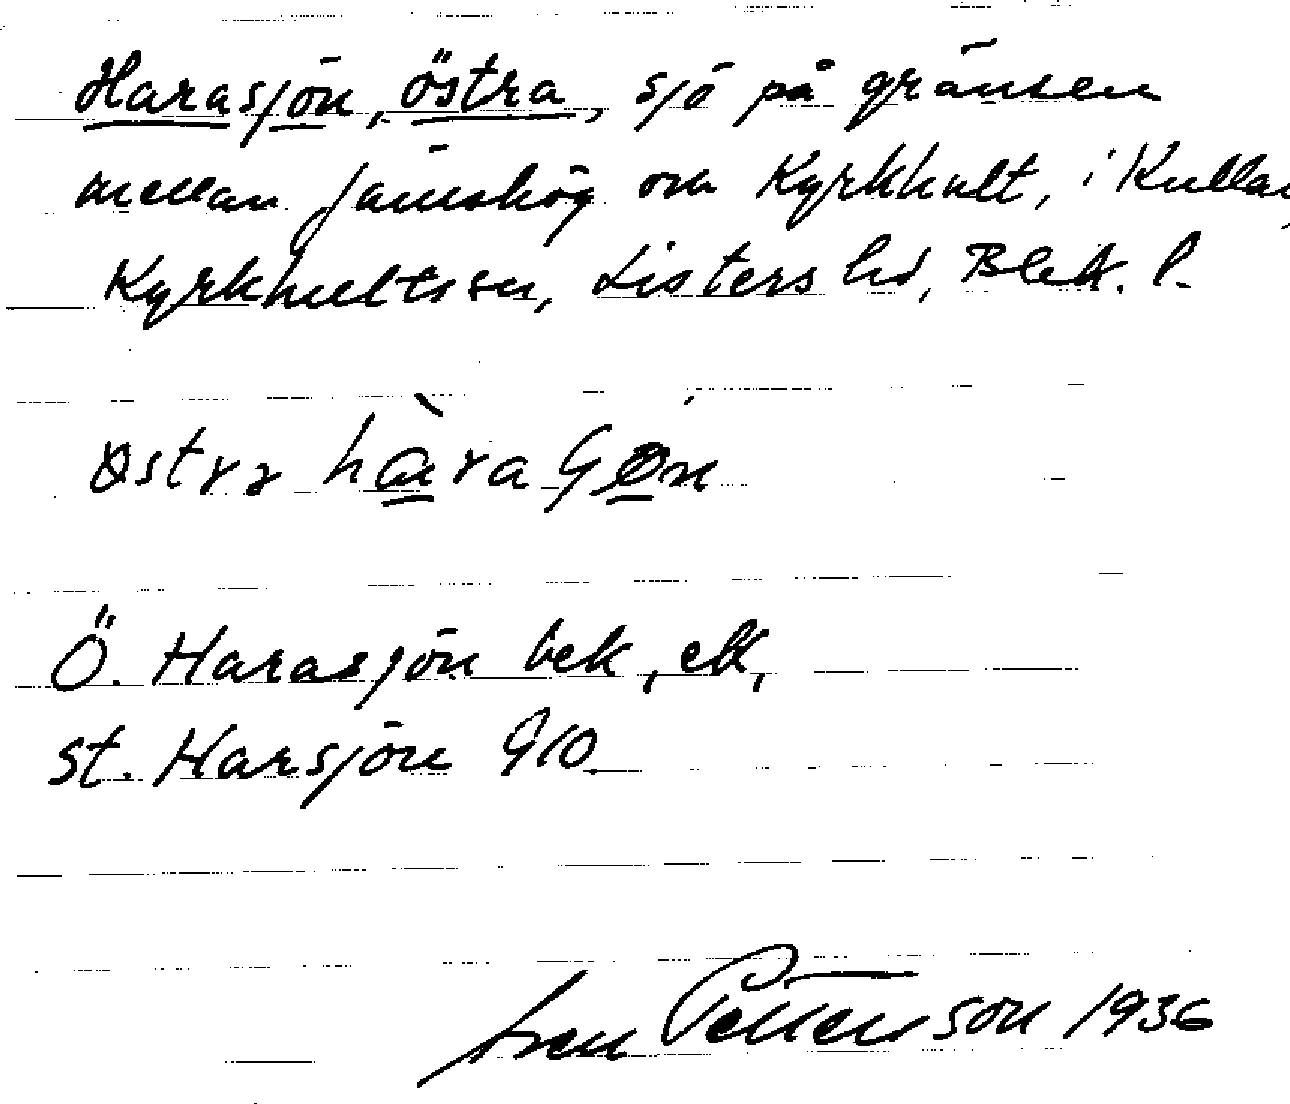 Harasjön, östra, sjö på gränsen
mellan Jämshög och Kyrkhult, i Kulla,
Kyrkhults sn, Listers hd, Blek. l.
Ö. Harasjön bek, ek,
St. Harsjön GlO
Sven Pettersson 1936